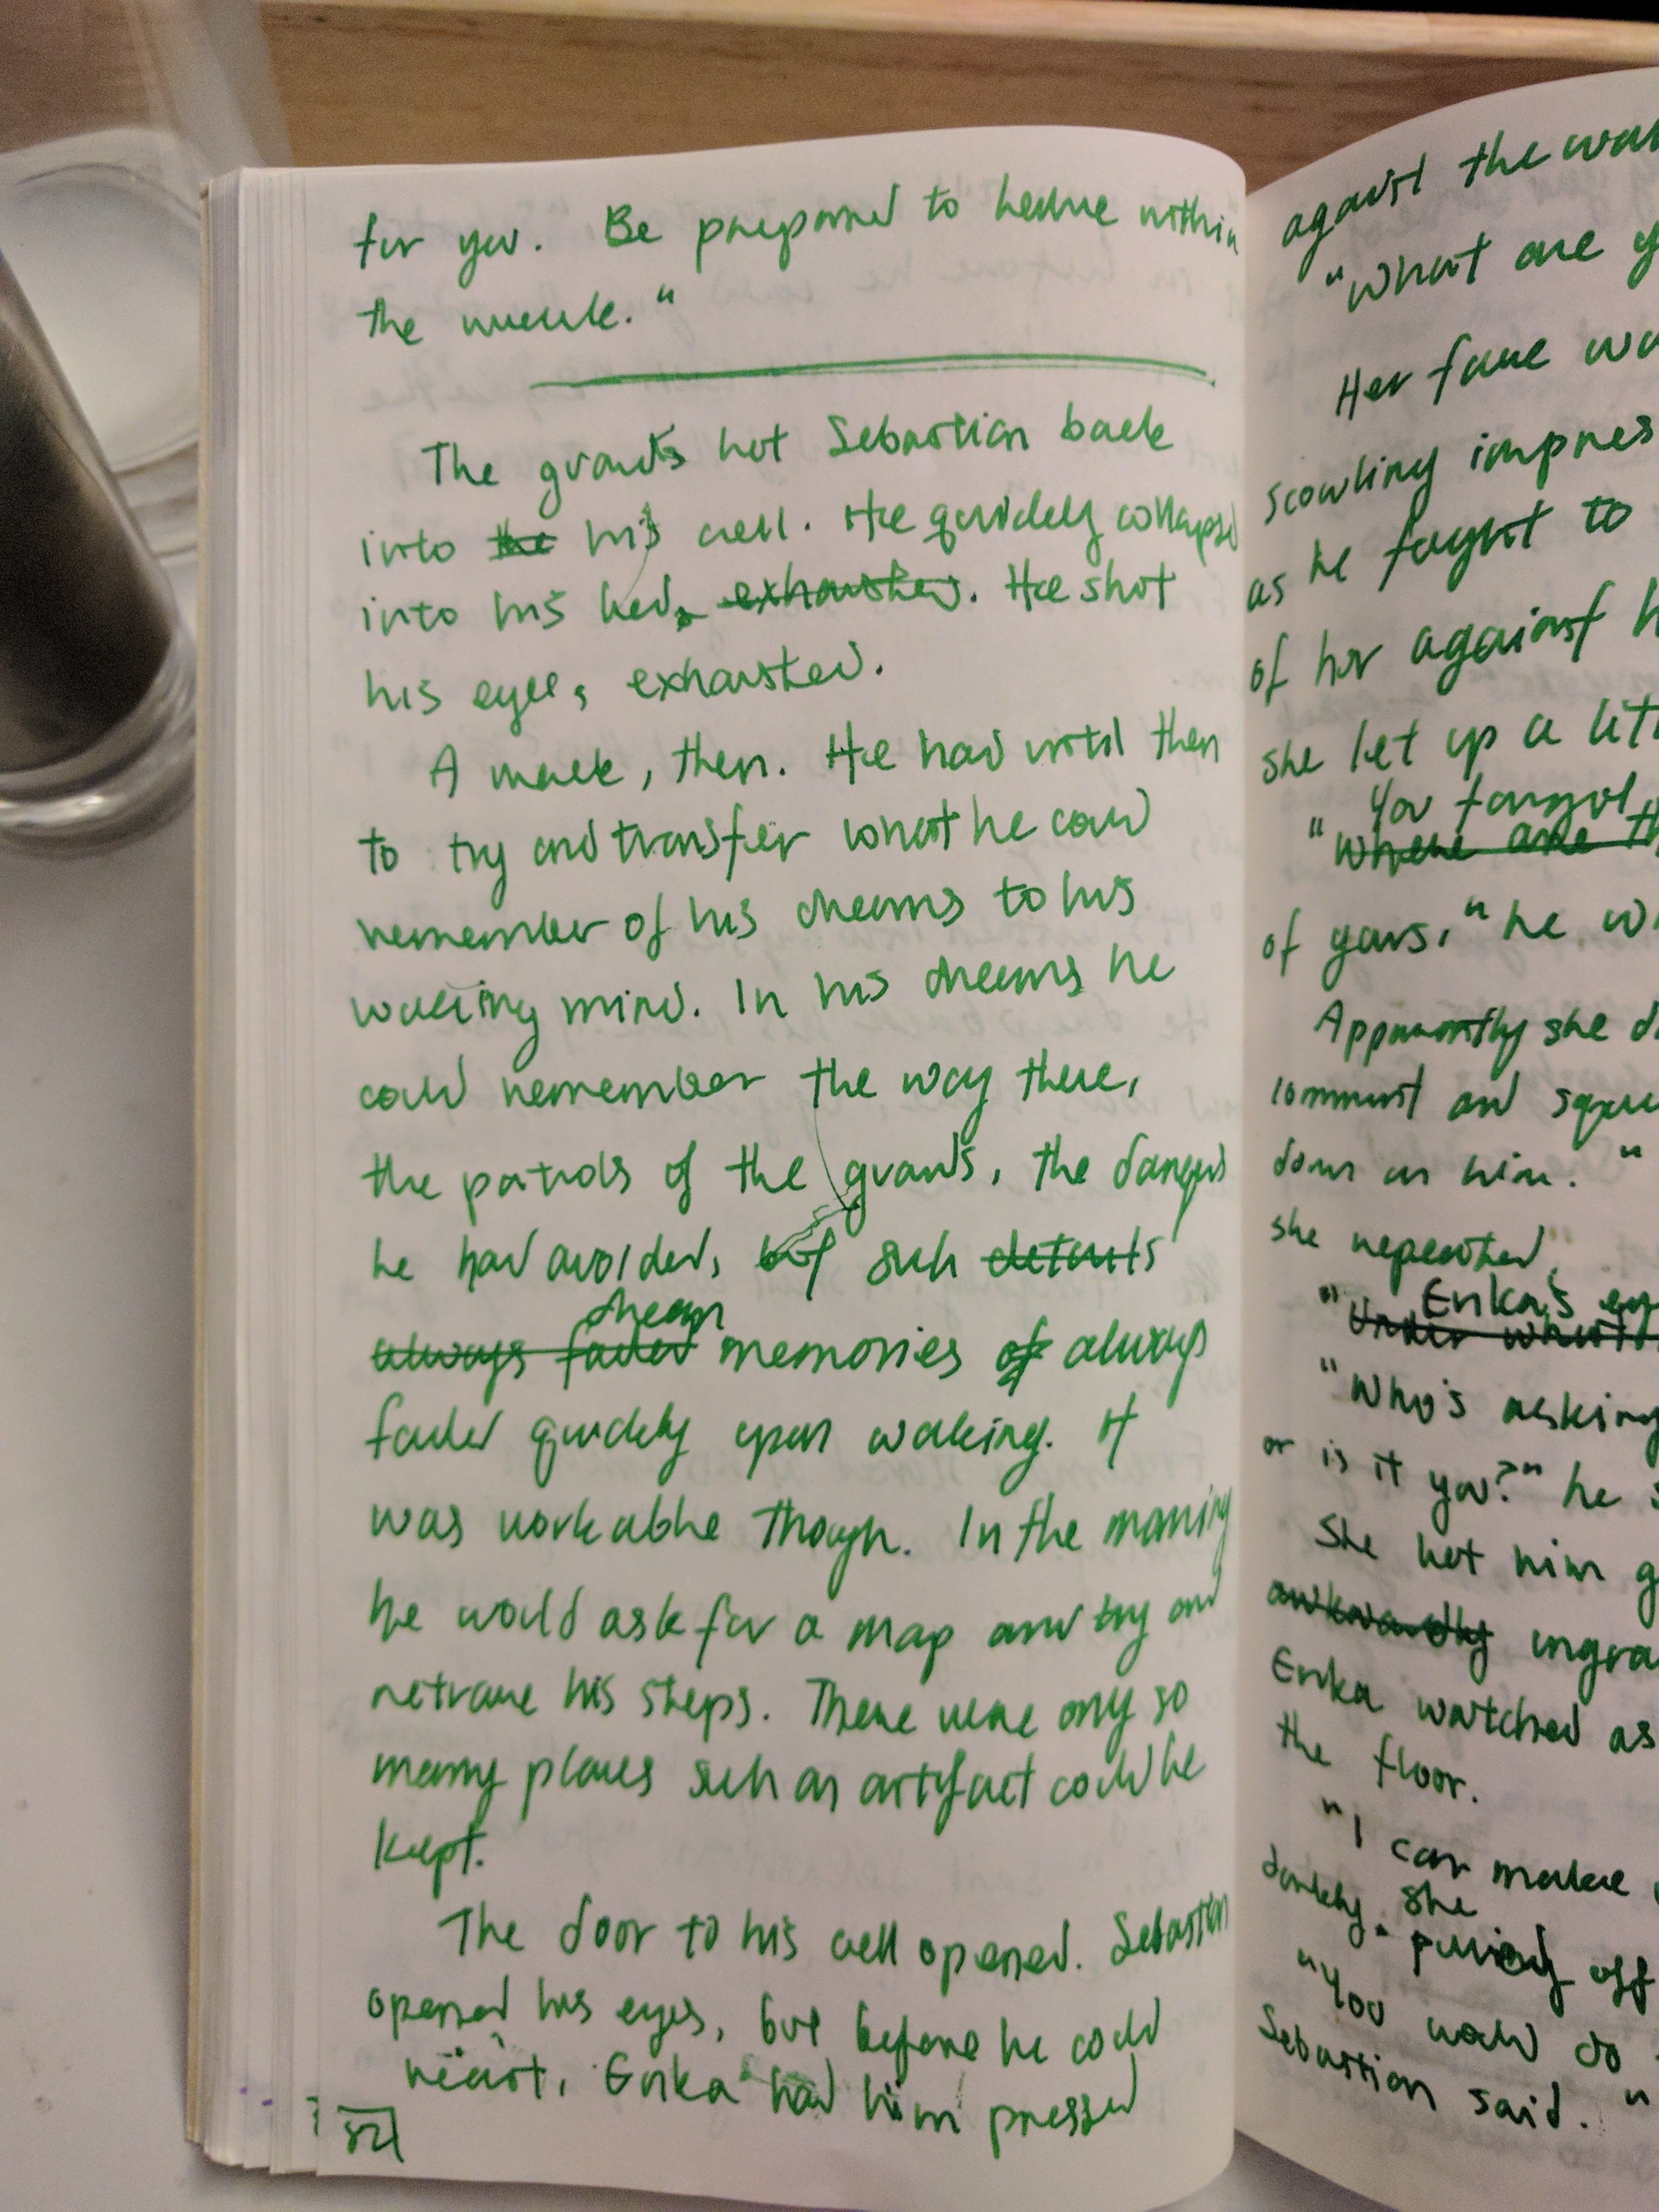 for you. Be prepared to leave within
the week."
The guards let Sebastian back
into the his cell. He quickly collapsed
into his bed, exhausted. He shut
his eyes, exhausted.
A week, then. He had until then
to try and transfer what he could
remember of his dreams to his
waking mind. In his dreams he
could remember the way there,
the patrols of the guards, the dangers
he had avoided, but such details
dream
always faded memories of always
faded quickly upon waking. It
was workable though. In the morning
he would ask for a map and try and
retrace his steps. There were only so
many places such an artifact could be
kept.
The door to his cell opened. Sebastian
opened his eyes, but before he could
react, Erika had him pressed
against the wall
"What are
Her face
scowling
as he fought to
of her against
she let up a
You forgot
"Where are
of yours," he
Apparently she
comment and
down on him. "
she repeated.
Erika's
"Under
"Who's asking
or is it you?" he
She let him
awkwardly
Erika watched as
the floor.
"I can make
darkly. She
off
"You would do
Sebastian said. "